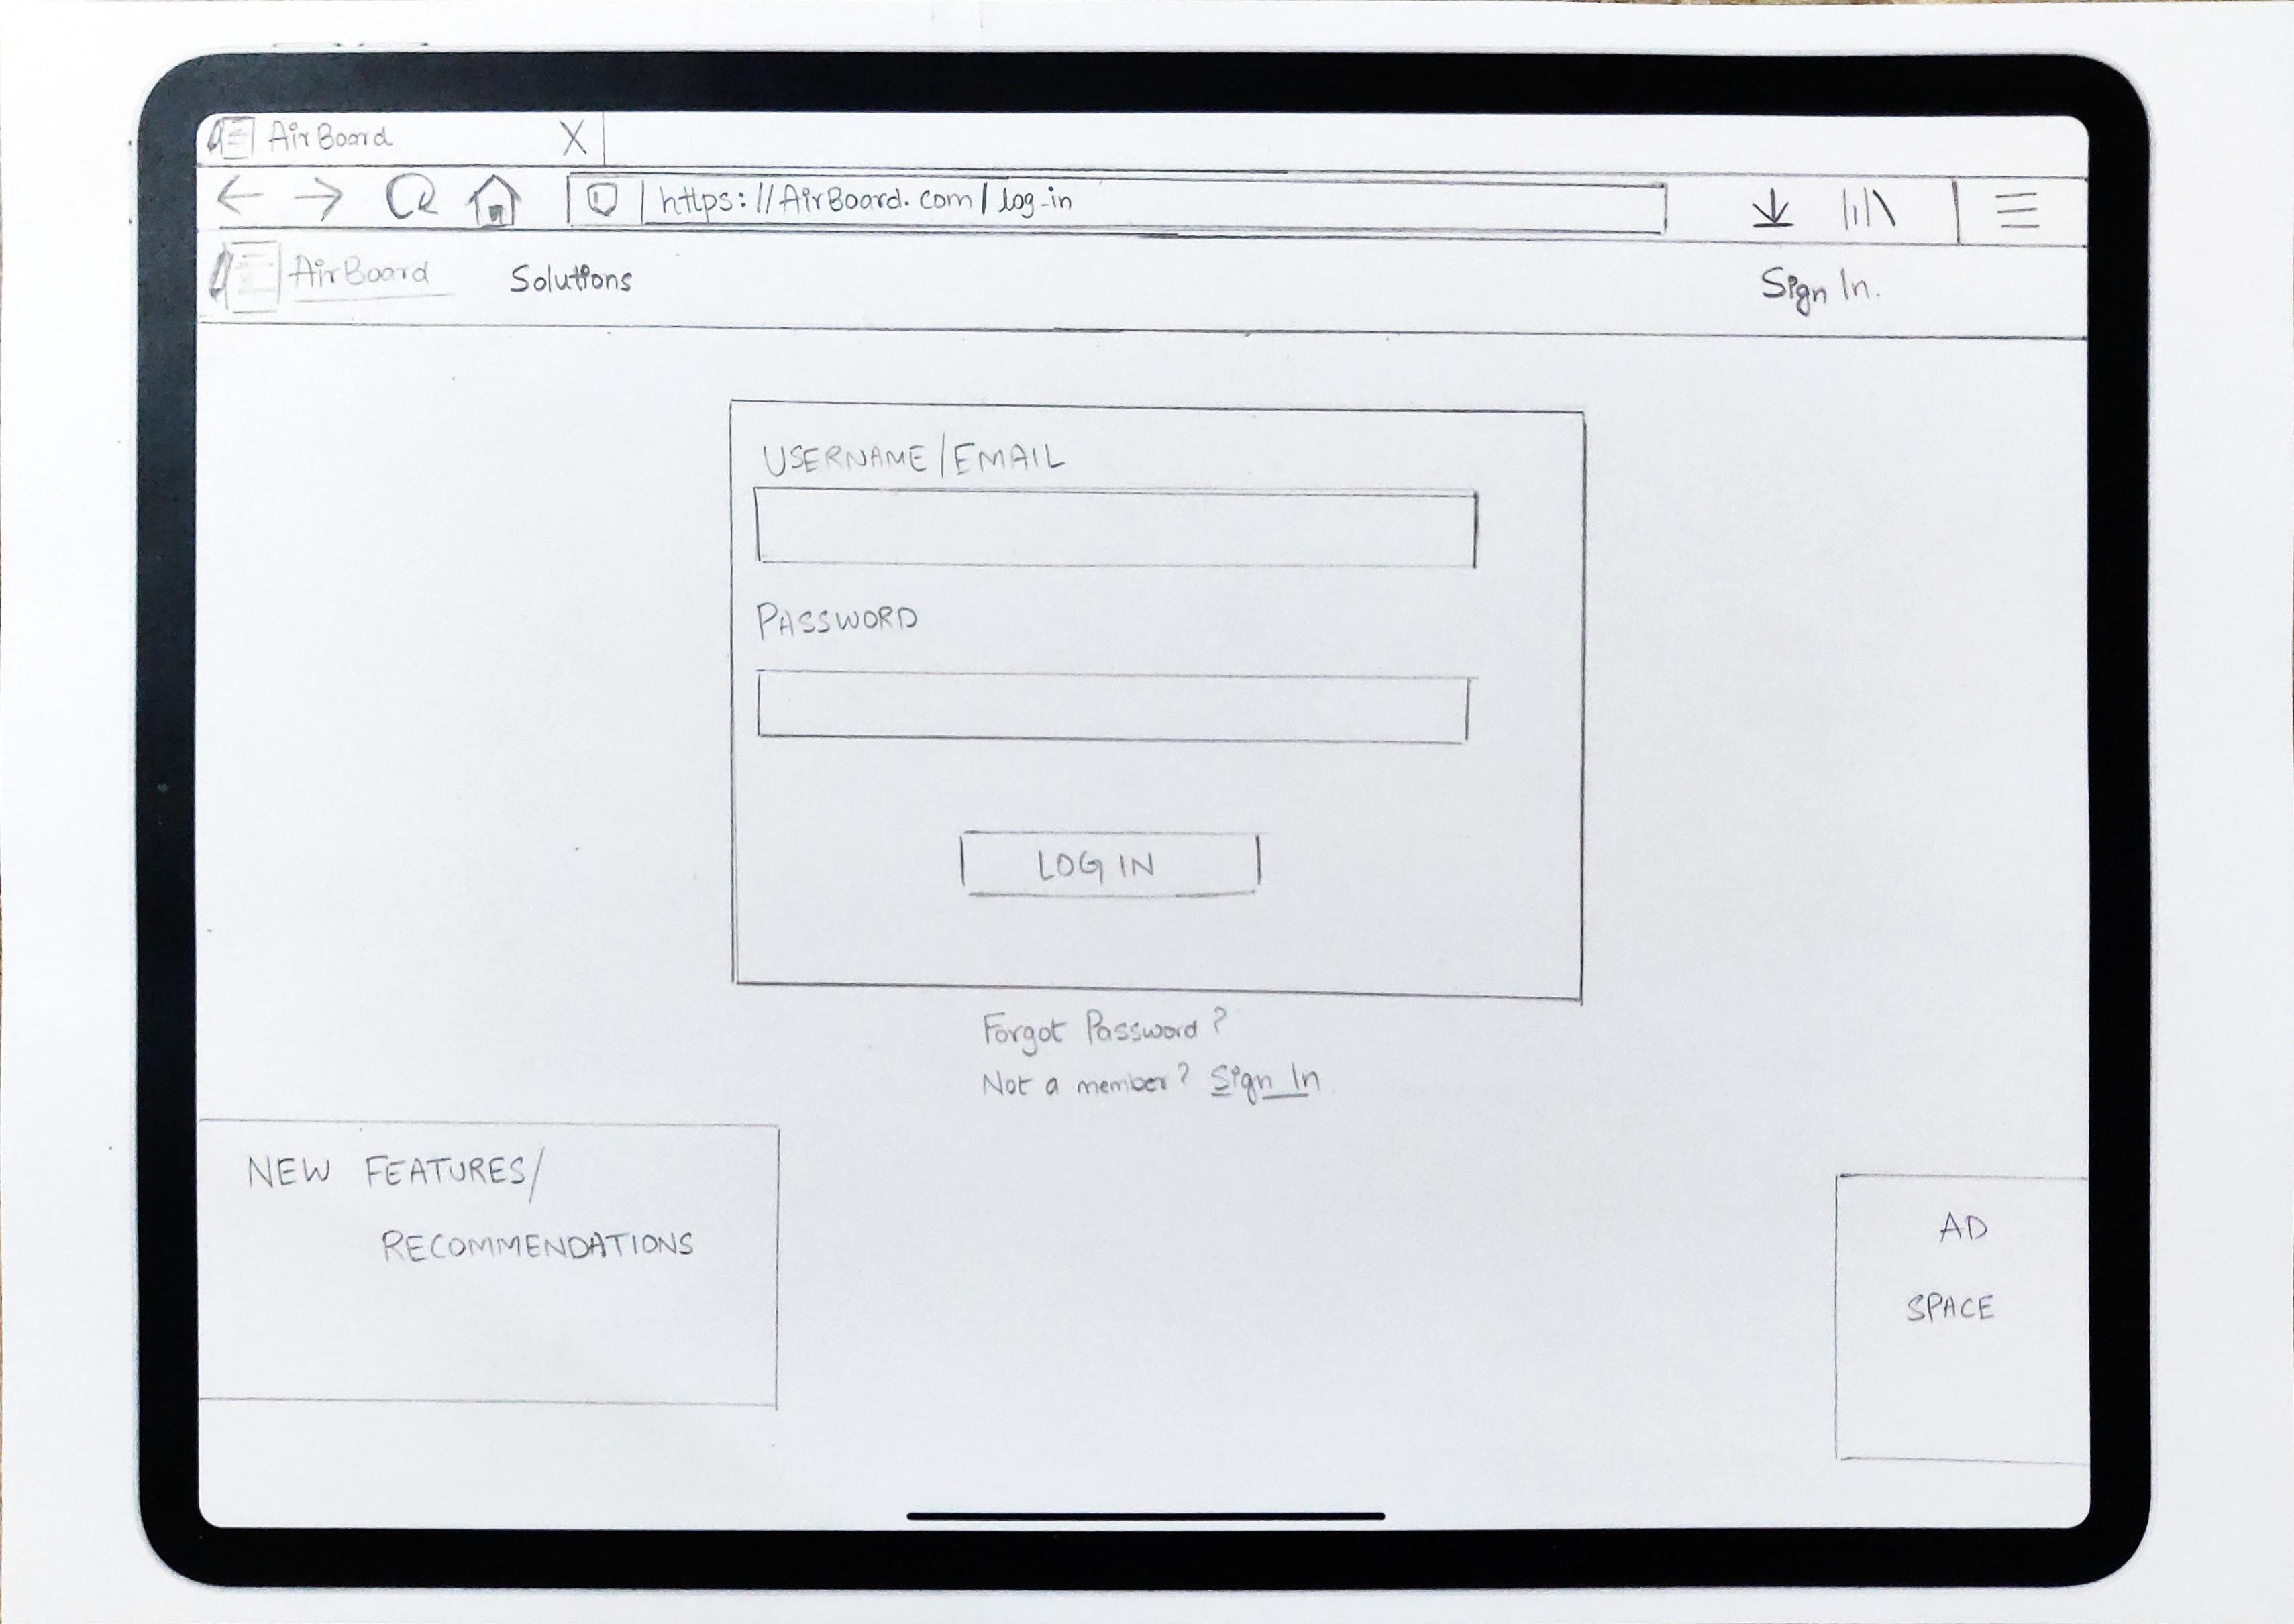 AirBoard X
https://AirBoard.com/log-in
AirBoard Solutions Sign In.
USERNAME/EMAIL
PASSWORD
LOG IN
Forgot Password?
Not a member? Sign In
NEW FEATURES/
RECOMMENDATIONS
AD
SPACE